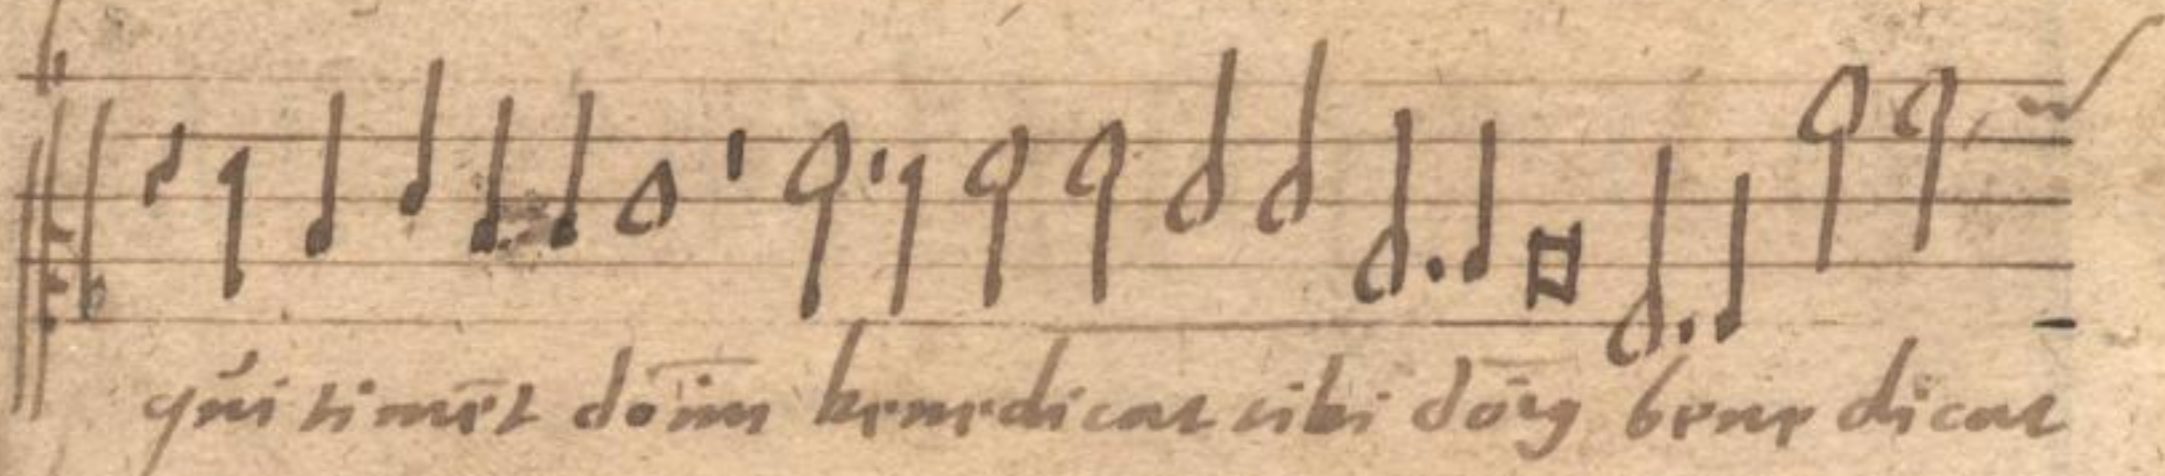 qui timēt dom̄m benedicat tibi dōs bene dicat